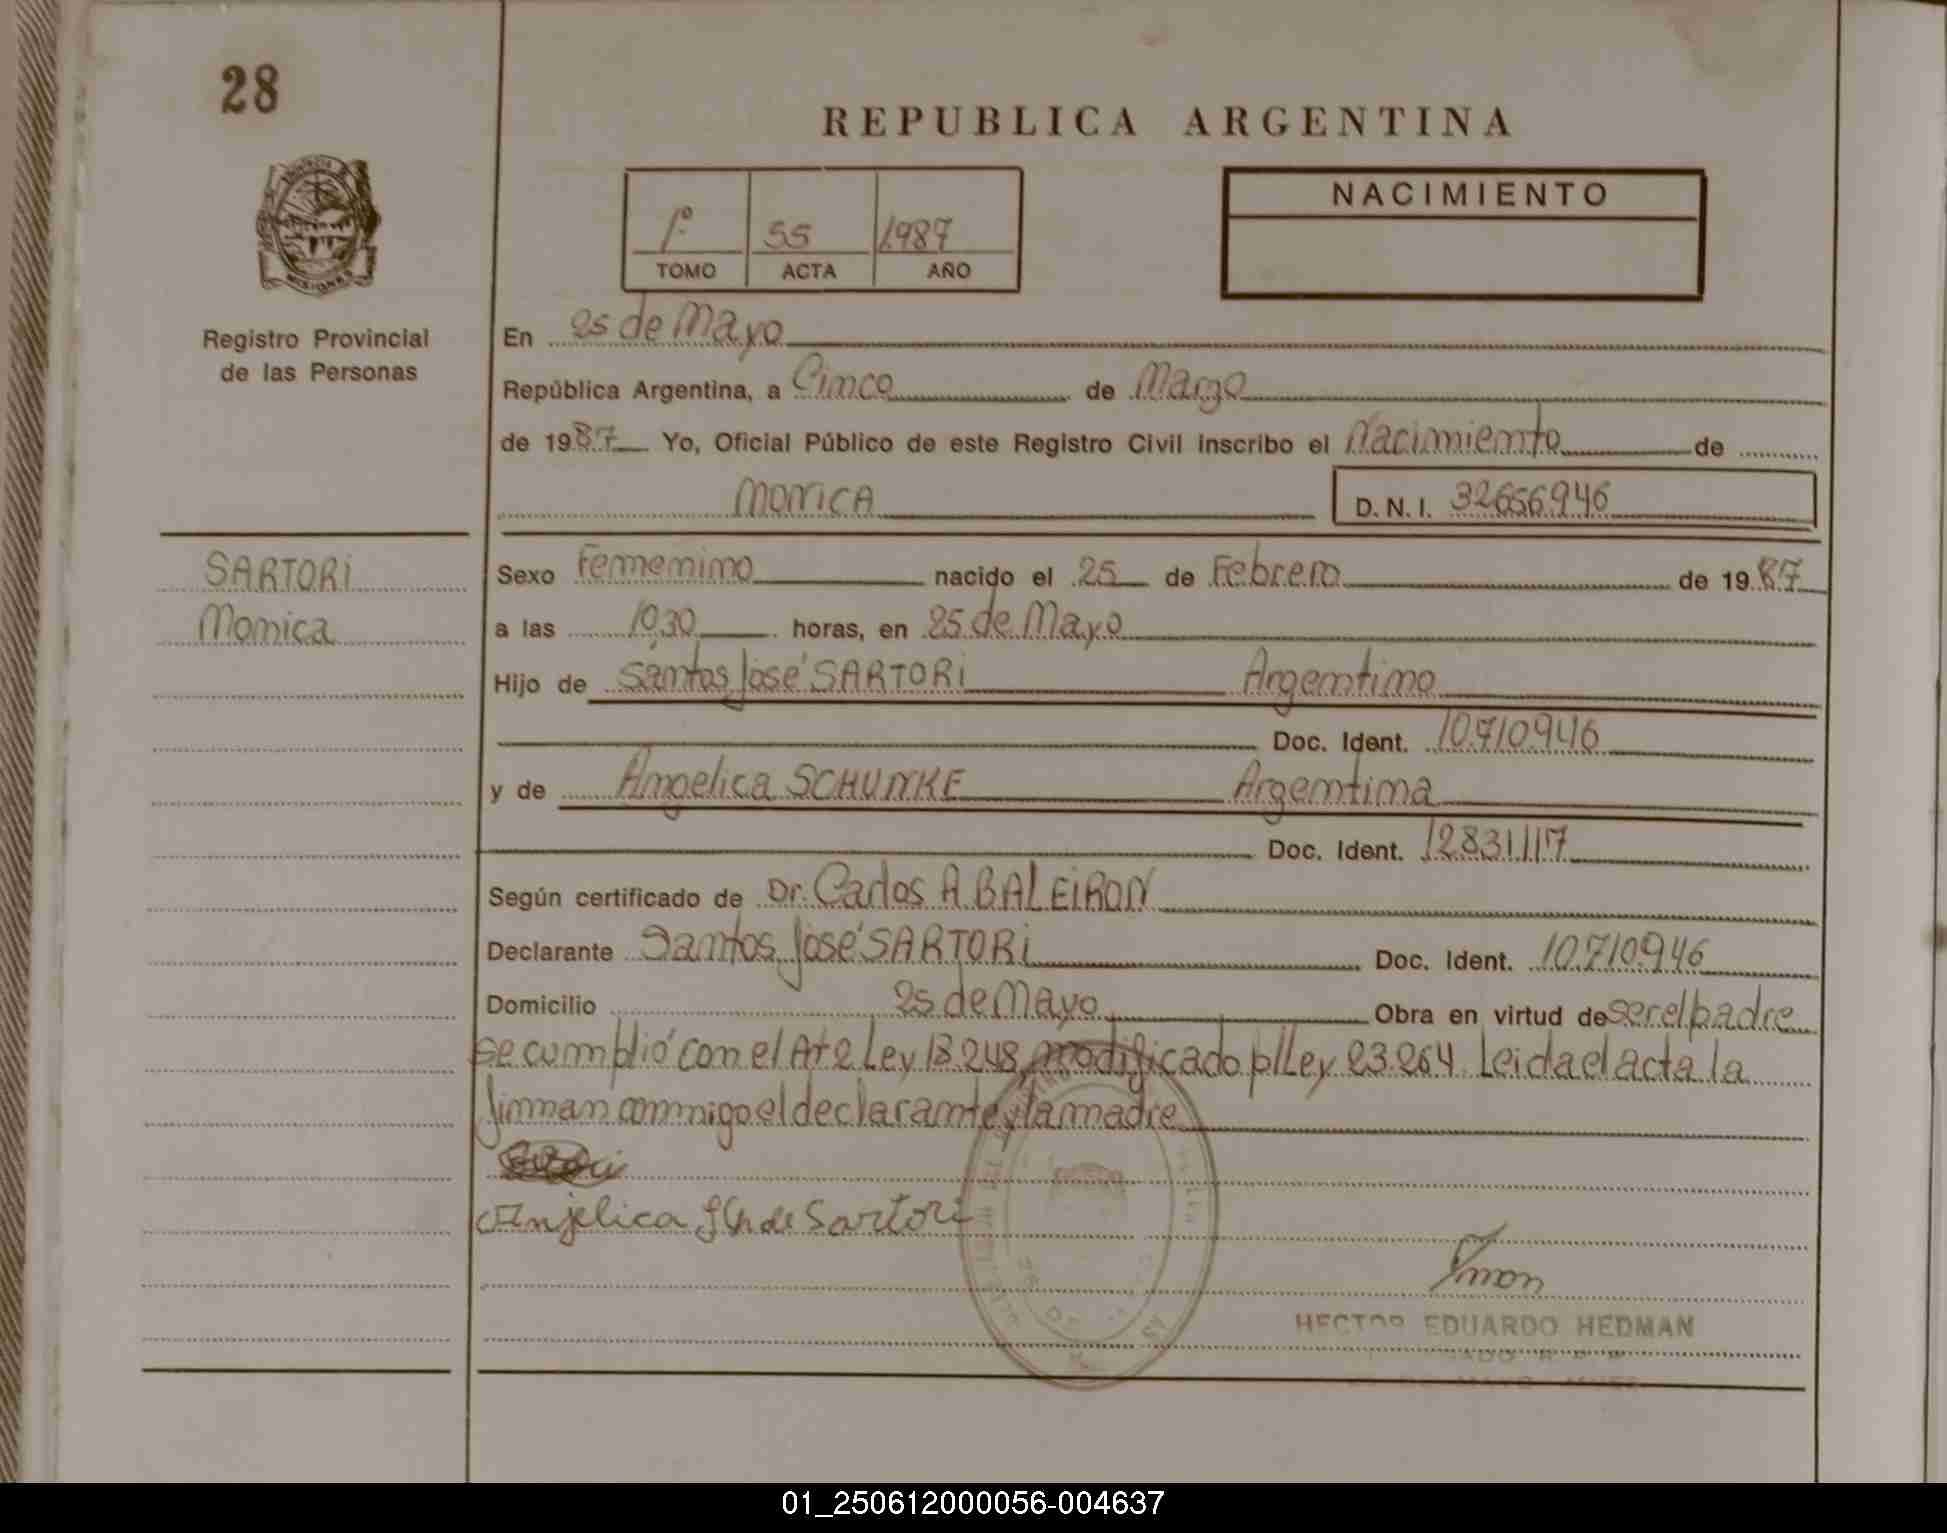 28
REPUBLICA ARGENTINA
1º 55 1987
TOMO ACTA AÑO
NACIMIENTO
Registro Provincial
de las Personas
En 25 de Mayo
República Argentina, a Cinco de Marzo
de 1987 Yo, Oficial Público de este Registro Civil inscribo el Nacimiento de
MONICA D.N.I. 32656946
SARTORI
Monica
Sexo Femenino nacido el 25 de Febrero de 1987
a las 10,30 horas, en 25 de Mayo
Hijo de Santos José SARTORI Argentino
Doc. Ident. 10.710.946
y de Angelica SCHUNKE Argentina
Doc. Ident. 12.831.117
Según certificado de Dr. Carlos A BALEIRON
Declarante Santos José SARTORI Doc. Ident. 10.710.946
Domicilio 25 de Mayo Obra en virtud de ser el padre
se cumplió con el At 2 Ley 18.248, modificado p/Ley 23.264. Leida el acta la
firman conmigo el declarante y la madre
Anjelica de Sartori
HECTOR EDUARDO HEDMAN
01_250612000056-004637